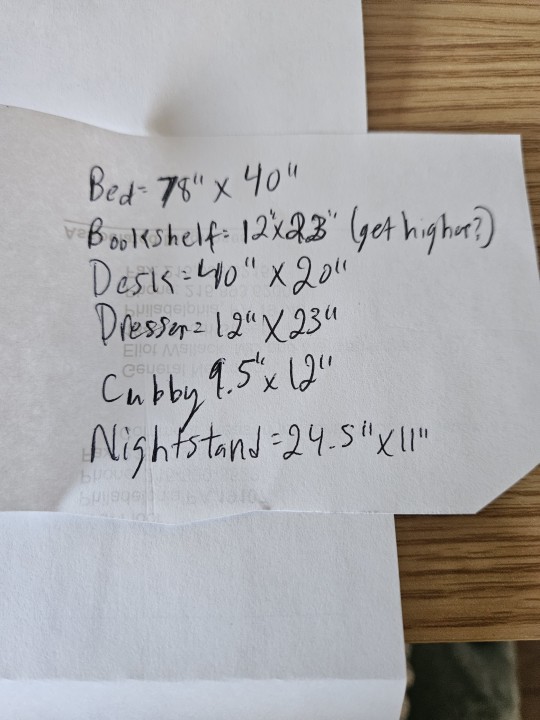 Bed = 78" x 40"
Bookshelf: 12" x 23" (get higher?)
Desk = 40" x 20"
Dresser = 12" x 23"
Cubby 9.5" x 12"
Nightstand = 24.5" x 11"